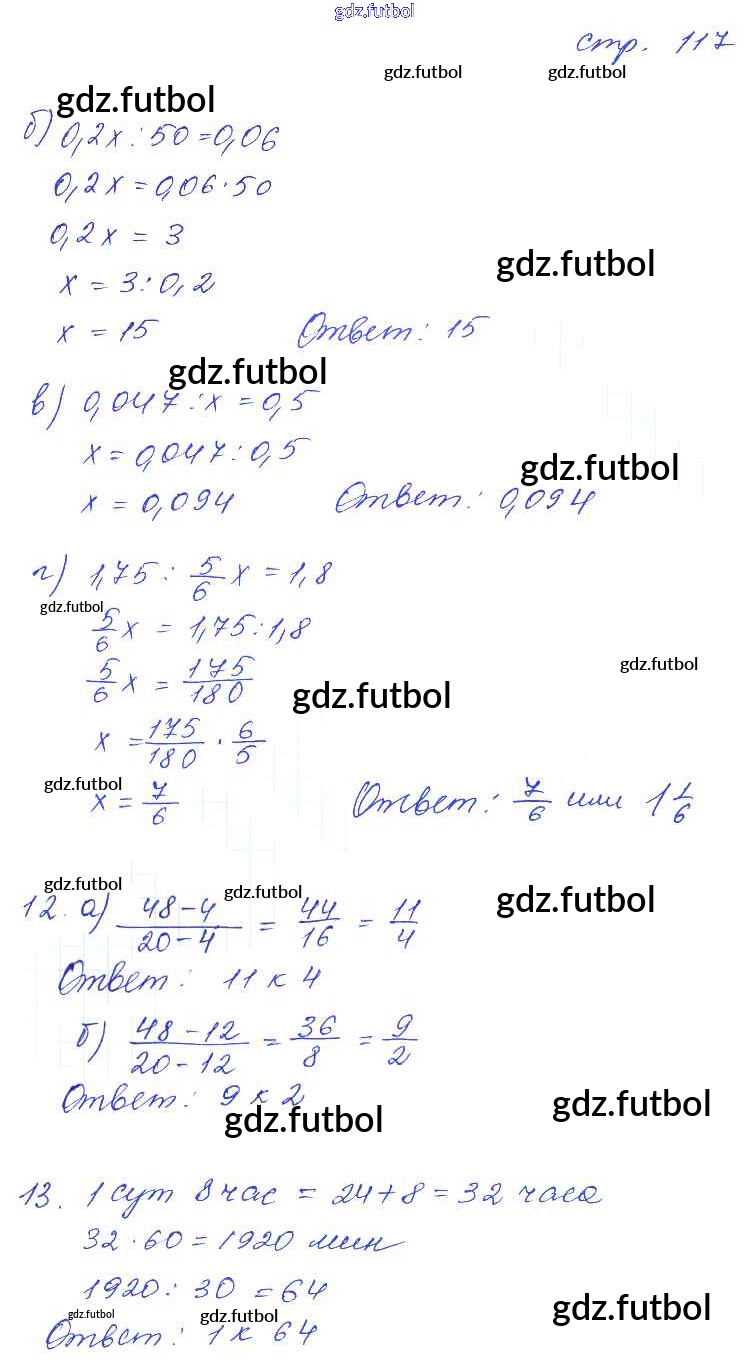 gdz.futbol
стр. 117
gdz.futbol gdz.futbol
gdz.futbol
б) 0,2x : 50 = 0,06
0,2x = 0,06 · 50
0,2x = 3
gdz.futbol
x = 3 : 0,2
x = 15 Ответ: 15
gdz.futbol
в) 0,047 : x = 0,5
x = 0,047 : 0,5
gdz.futbol
x = 0,094 Ответ: 0,094
г) 1,75 : 5/6 x = 1,8
gdz.futbol
5/6 x = 1,75 : 1,8
gdz.futbol
5/6 x = 175/180
gdz.futbol
x = 175/180 · 6/5
gdz.futbol
x = 7/6 Ответ: 7/6 или 1 1/6
gdz.futbol gdz.futbol gdz.futbol
12. а) 48-4/20-4 = 44/16 = 11/4
Ответ: 11 к 4
б) 48-12/20-12 = 36/8 = 9/2
Ответ: 9 к 2
gdz.futbol gdz.futbol
13. 1 сут 8 час = 24 + 8 = 32 часа
32 · 60 = 1920 мин
1920 : 30 = 64
gdz.futbol gdz.futbol gdz.futbol
Ответ: 1 к 64